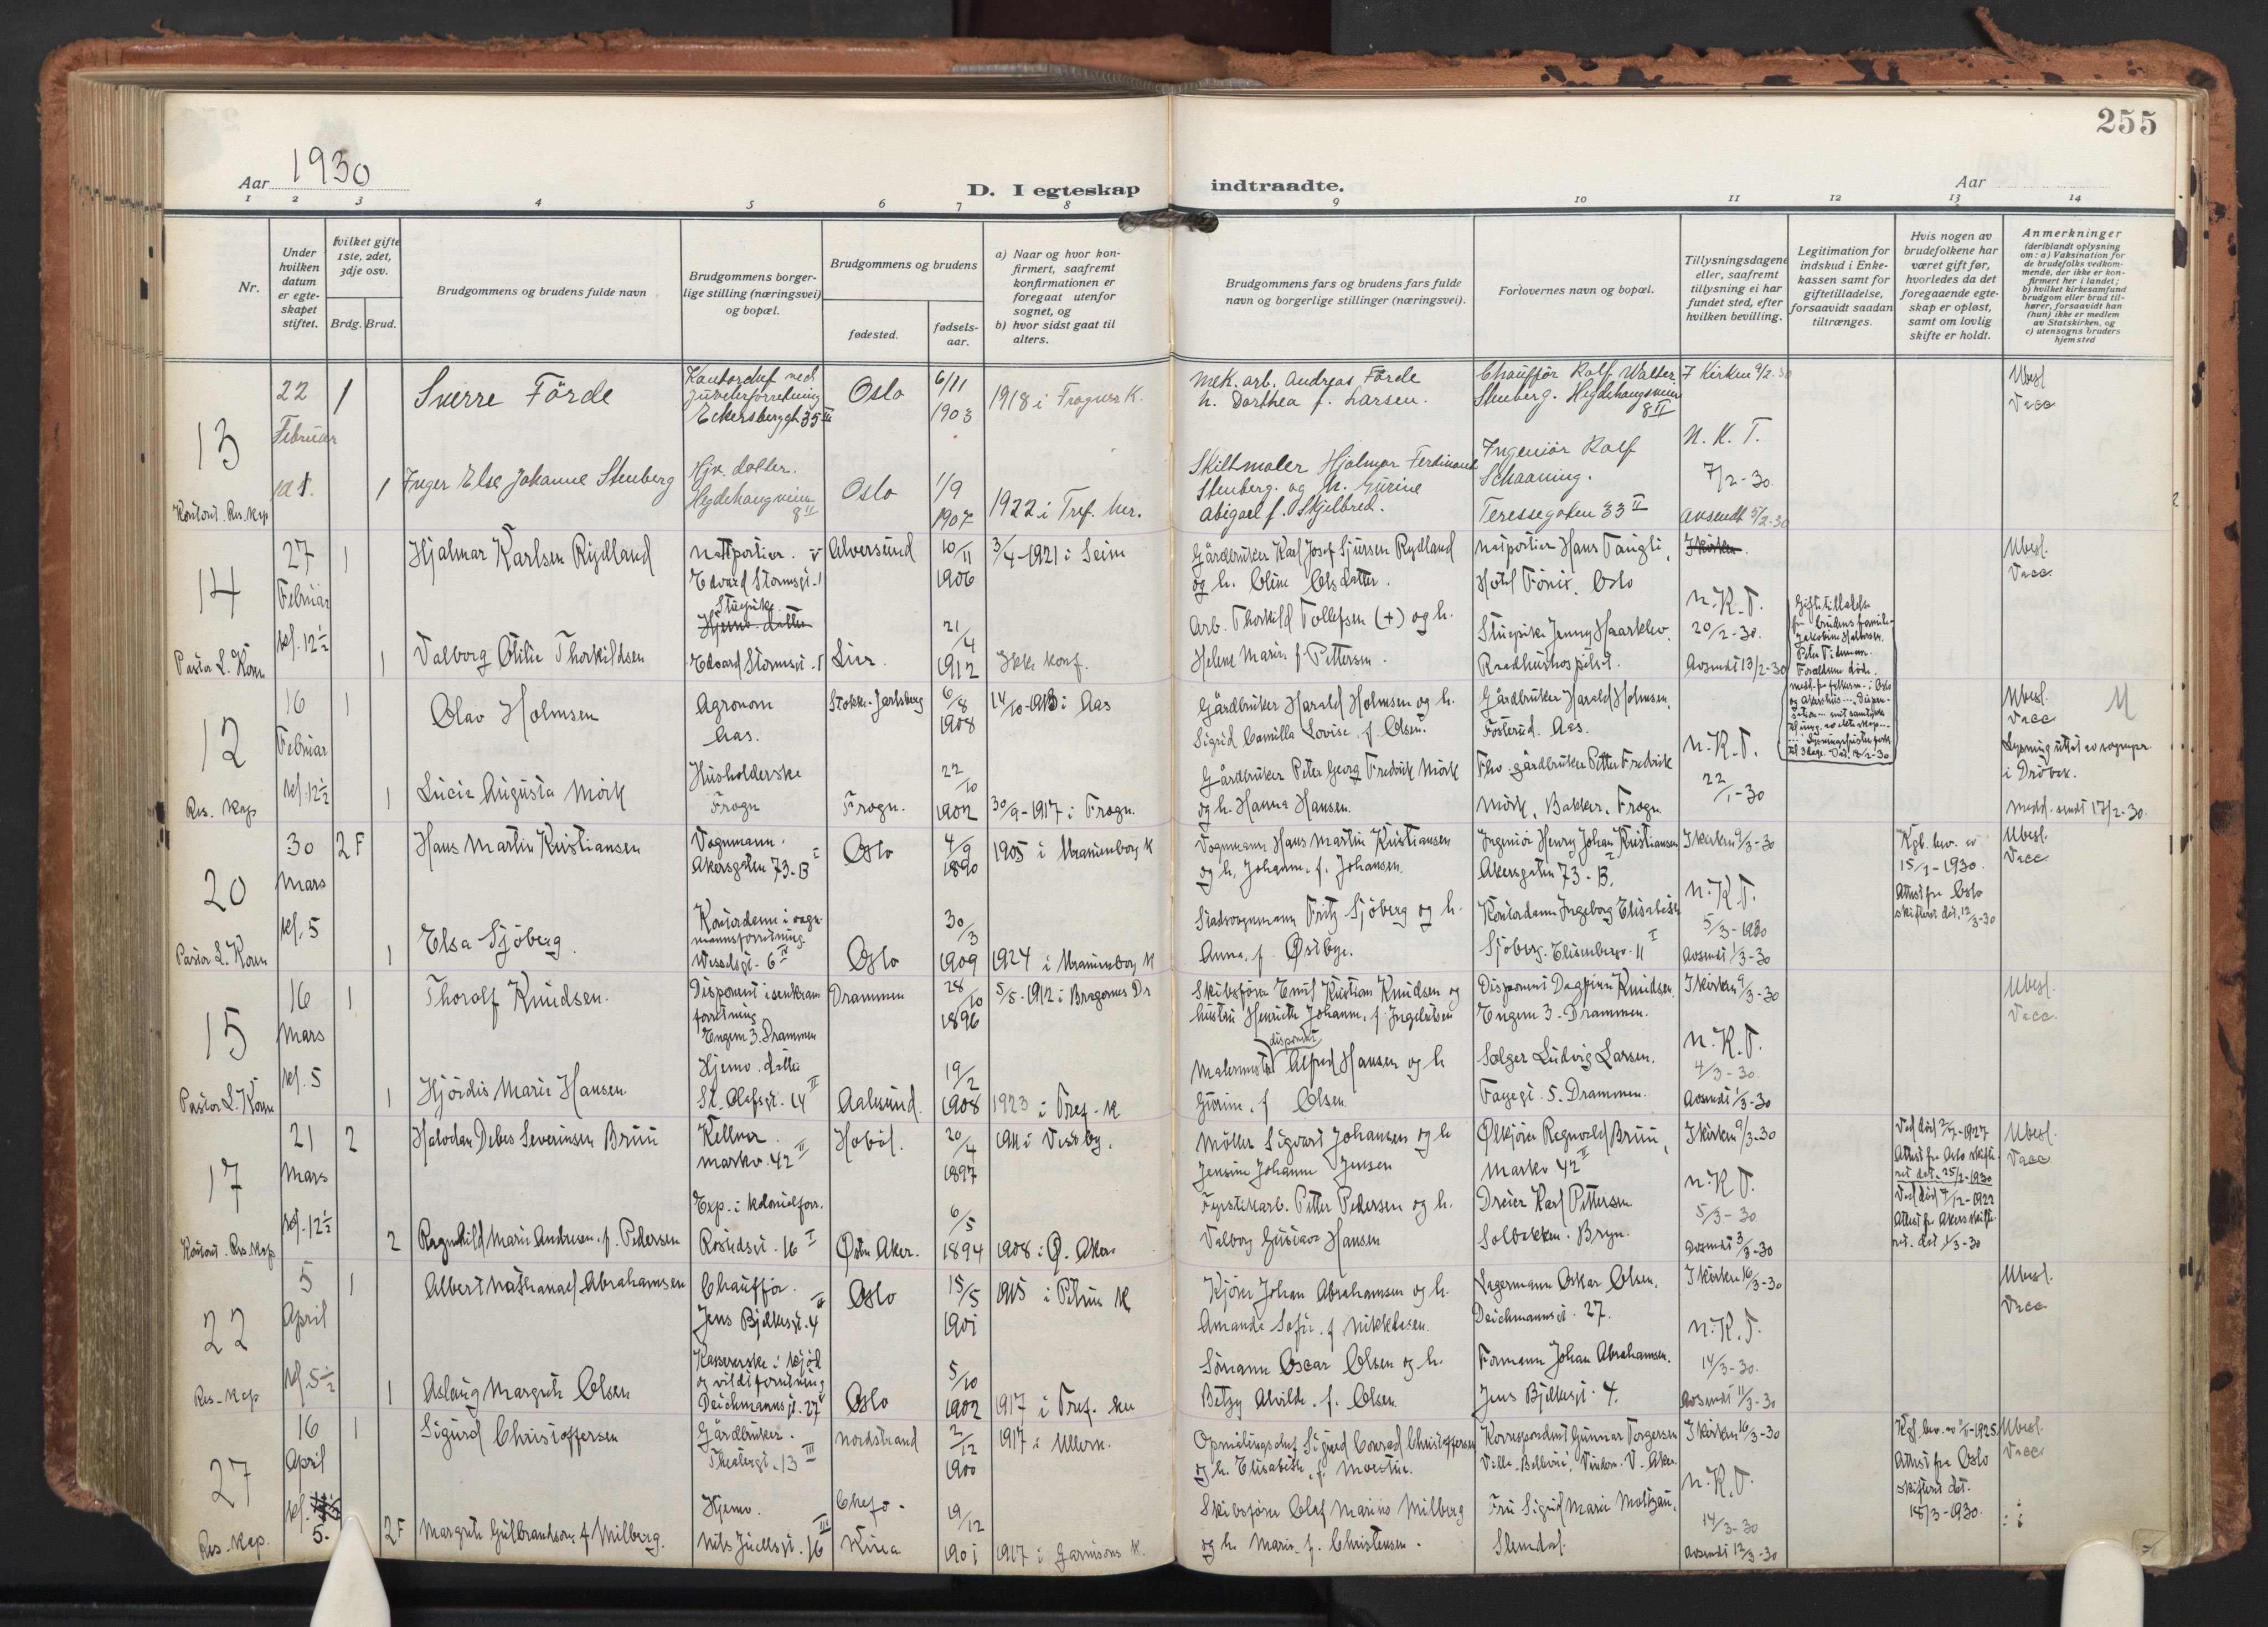 255
Aar 1930
D. I egteskap indtraadte.
Aar
1 2 3 4 5 6 7 8 9 10 11 12 13 14
Nr.
Under hvilken datum er egteskapet stiftet.
hvilket gifte 1ste, 2det, 3dje osv.
Brdg. Brud.
Brudgommens og brudens fulde navn
Brudgommens borgerlige stilling (næringsvei) og bopæl.
Brudgommens og brudens
fødested.
fødselsaar.
a) Naar og hvor konfirmert, saafremt konfirmationen er foregaat utenfor sognet, og
b) hvor sidst gaat til alters.
Brudgommens fars og brudens fars fulde navn og borgerlige stillinger (næringsvei).
Forlovernes navn og bopæl.
Tillysningsdagene eller, saafremt tillysning ei har fundet sted, efter hvilken bevilling.
Legitimation for indskud i Enkekassen samt for giftetilladelse, forsaavidt saadan tiltrænges.
Hvis nogen av brudefolkene har været gift før, hvorledes da det foregaaende egteskap er opløst, samt om lovlig skifte er holdt.
Anmerkninger
(deriblandt oplysning om: a) Vaksination for de brudefolks vedkommende, der ikke er konfirmert her i landet; b) hvilket kirkesamfund brudgom eller brud tilhører, forsaavidt han (hun) ikke er medlem av Statskirken, og c) utensogns bruders hjemsted
13
22 Februar
1
Sverre Förde
Eckersbergsgt 35 III
Oslo
6/11 1903
1918 i Frogner K.
Mek. arb. Andreas Förde
h. Dorthea f. Larsen.
Chaufför Rolf Walter
Stenberg. Hegdehaugsveien 8 II
I Kirken 9/2-30
Ubesl.
Vacc.
Konst. Res. kap
1
Inger Else Johanne Stenberg
Hjv. datter.
Hegdehaugveien 8 II
Oslo
1/9 1907
1922 i Tref. her.
Skiltmaler Hjalmar Ferdinand
Stenberg. og h. Gurine
Abigael f. Skjelbred.
Ingeniör Rolf
Schaaning.
Teressegaten 33 II
N. K. T.
7/2-30.
Avsendt 5/2-30
14
27 Februar
kl. 12 1/2
1
Hjalmar Karlsen Rydland
Nattportier.
Edvard Stormsgt. 1
Alversund
10/11 1906
3/4-1921 i Seim
Gårdbruker Karl Josef Sjursen Rydland
og h. Oline Olsdatter.
Natportier Hans Tangli,
Hotel Fönix. Oslo
I kirken.
Ubesl.
Vacc.
Pastor L. Koren
1
Valborg Otilie Thorkildsen
Stuepike
Hjemv. datter
Edvard Stormsgt. 1
Lier.
21/4 1912
Ikke konf.
Arb. Thorkild Tollefsen (+) og h.
Helene Marie f. Pettersen.
Stuepike Jenny Haarklev.
Raadhushospitset.
N. K. T.
20/2-30.
Avsendt 13/2-30
Giftetilladelse
Foreldrene döde.
12
16 Februar
kl. 12 1/2
1
Olav Holmsen
Agronom
Aas.
Stokke. Jarlsberg
6/8 1908
i Aas
Gårdbruker Harald Holmsen og h.
Sigrid Camilla Lovise, f. Olsen.
Gårdbruker Harald Holmsen,
Fosterud. Aas.
Ubesl.
Vacc
Res. Kap
1
Lucie Augusta Mörk
Husholderske
Frogn
Frogn.
22/10 1902
30/9-1917 i Frogn.
Gårdbruker Peter Georg Fredrik Mörk
og h. Hanna Hansen.
Fhv. gårdbruker Petter Fredrik
Mörk, Bakker. Frogn.
N. K. T.
22/1-30
Lysning uttat av sogneprest
i Dröbak.
Medd. sendt 17/2-30.
20
30 Mars
kl. 5
2F
Hans Martin Kristiansen
Vognmann.
Akersgaten 73-B I
Oslo
4/9 1890
1905 i Uranienborg K
Vognmann Hans Martin Kristiansen
og h. Johanne, f. Johansen.
Ingeniör Henry Johan Kristiansen
Akersgaten 73-B. I
I kirken 9/3-30
15/1-1930.
Attest fra Oslo
skifterett dat. 12/3-30
Ubesl.
Vacc
Pastor L. Koren
1
Elsa Sjöberg
Kontordame i vognmannsforretning.
Wesselsgt. 6 IV
Oslo
30/3 1909
1924 i Uranienborg K
Stadsvognmann Fritz Sjöberg og h.
Anna, f. Østbye.
Kontordame Ingeborg Elisabeth
Sjöberg. Elisenbergv. 11 I
N. K. T.
5/3-1930
Avsendt 1/3-30
15
16 Mars
kl. 5
1
Thoralf Knudsen.
Disponent i isenkramforretning
Engene 3. Drammen
Drammen
28/10 1896
5/5-1912 i Bragernes Dr
Skibsförer Emil Kristian Knudsen og
hustru Henriette Johanne, f. Ingebretsen
Disponent Dagfinn Knudsen.
Engene 3. Drammen.
I kirken 9/3-30
Ubesl.
Vacc.
Pastor L. Koren
1
Hjördis Marie Hansen
Hjemv. datter
St. Olafsgt. 14 II
Aalesund.
19/2 1908
1923 i Tref. K
Malermester disponent Alfred Hansen og h
Gurine, f. Olsen
Selger Ludvig Larsen.
Fayegt. 5. Drammen.
N. K. T.
4/3-30.
Avsendt 1/3-30
17
21 Mars
kl. 12 1/2
2
Halvdan Debes Severinsen Bruu
Kellner.
Markv. 42 II
Hobøl.
20/4 1897
1911 i Vestby.
Möller Sigvart Johansen og h
Jensine Johanne Jensen
Ølkjörer Regnvald Bruu,
Markv. 42 II
I kirken 9/3-30
Attest fra Oslo skifterett dat. 25/2-1930
Ubesl.
Vacc
Konst. Res. kap
2
Ragnhild Marie Andresen. f. Pedersen
Exp. i kolonialforr.
Rostedsgt. 16 I
Østre Aker.
6/5 1894
1908 i Ø. Aker
Fyrstikarb. Petter Pedersen og h.
Valborg Gustava Hansen
Dreier Karl Pettersen
Solbakken. Bryn.
N. K. T.
5/3-30
Avsendt 3/3-30
Attest fra Akers skifterett. dat 1/3-30
22
5 April
kl. 5 1/2
1
Albert Nathanael Abrahamsen
Chaufför.
Jens Bjelkesgt. 4
Oslo
15/5 1901
1915 i Petrus K
Kjörer Johan Abrahamsen og h.
Amanda Sofie. f. Nikklesen.
Lagermann Oskar Olsen.
Deichmannsgt. 27.
I kirken 16/3-30
Ubesl.
Vacc
Res. Kap
1
Aslaug Margrete Olsen
Kassererske i kjöd
og vildtforretning
Deichmannsgt. 27
Oslo
5/10 1902
1917 i Tref. her
Sömann Oscar Olsen og h.
Betzy Alvilde. f. Olsen.
Formann Johan Abrahamsen.
Jens Bjelkesgt. 4.
N. K. T.
14/3-30.
Avsendt 11/3-30
27
16 April
kl. 5.
1
Sigurd Christoffersen
Gårdbruker.
Theatergt. 13 III
Nordstrand
2/12 1900
1917 i Ullern.
Opmålingschef Sigurd Conrad Christoffersen
og h. Elisabeth, f. Moestue.
Korrespondent Gunnar Torgersen
Vinderen. V. Aker.
I kirken 16/3-30
Attest fra Oslo
skifterett dat.
18/3-1930.
Ubesl.
Vacc
Res. Kap.
2F
Margrete Gulbrandsen f. Milberg.
Hjemv.
Nils Juelsgt. 16 III
Chefo.
Kina
19/12 1901
1917 i Garnisons K.
Skibsförer Olaf Marius Milberg
og h. Marie, f. Christensen.
Fru Sigrid Marie Moltzau,
Slemdal.
N. K. T.
14/3-30
Avsendt 12/3-30